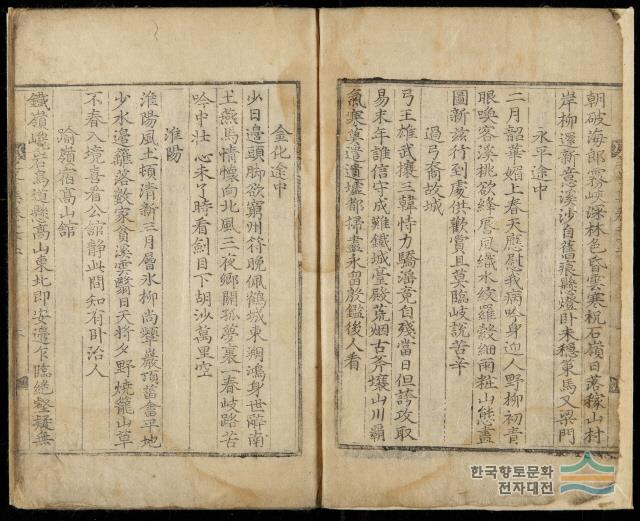 朝破海郞霧峽深林色昏雲寒祝石嶺日落稼山村
岸柳還新意溪沙自舊痕縣燈卧未穩束馬又梁門
永平途中
二月韶華媚上春天應慰我病吟身迎人野柳初靑
眼喚客溪桃欲絳唇風織水紋羅縠細雨粧山態畫
圖新茲行到處供歡賞且莫臨岐說苦辛
過弓裔故城
弓王雄武攘三韓恃力驕淫竟自殘當日但誇攻取
易末年誰信守成難鐵城臺殿荒烟古斧壤山川霸
氣寒草邊遺墟都掃盡永留殷鑑後人看
金化途中
少日邊頭脚欲窮州符晩佩鶴城東朔鴻身世辭南
土燕馬情懷向北風三夜鄕關孤夢裏一春岐路苦
吟中壯心未了時看劒目下胡沙萬里空
淮陽
淮陽風土頓淸新三月層氷柳尙顰巖頂菑畬平地
少水邊籬落數家貧溪雲翳日天將夕野燒籠山草
不春入境喜看公館靜此間知有卧治人
踰嶺宿高山館
鐵嶺巉岩鳥道縣高山東北卽安邊乍臨絶壑疑無
한국향토문화
전자대전